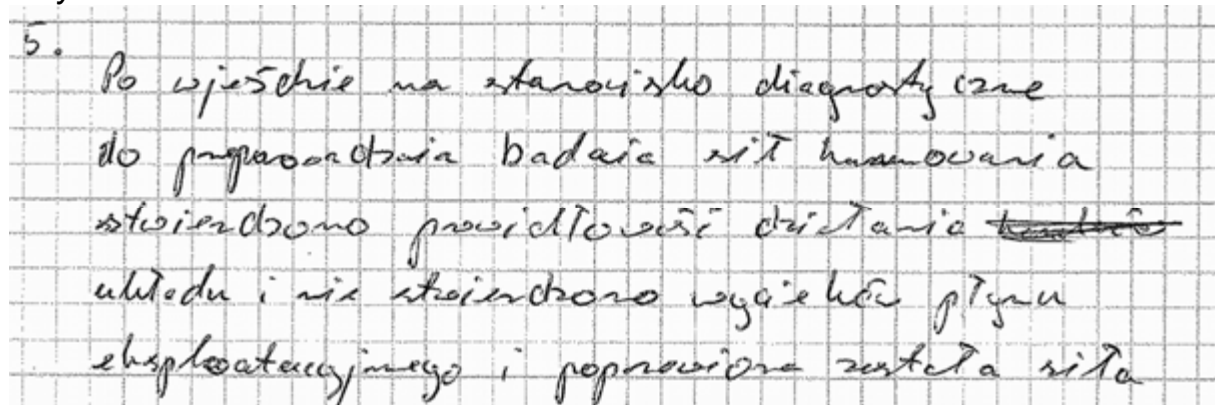 5.
Po wjeździe na stanowisko diagnostyczne
do przeprowadzenia badania sił hamowania
stwierdzono prawidłowość działania
układu i nie stwierdzono wycieków płynu
eksploatacyjnego i poprawiona została siła